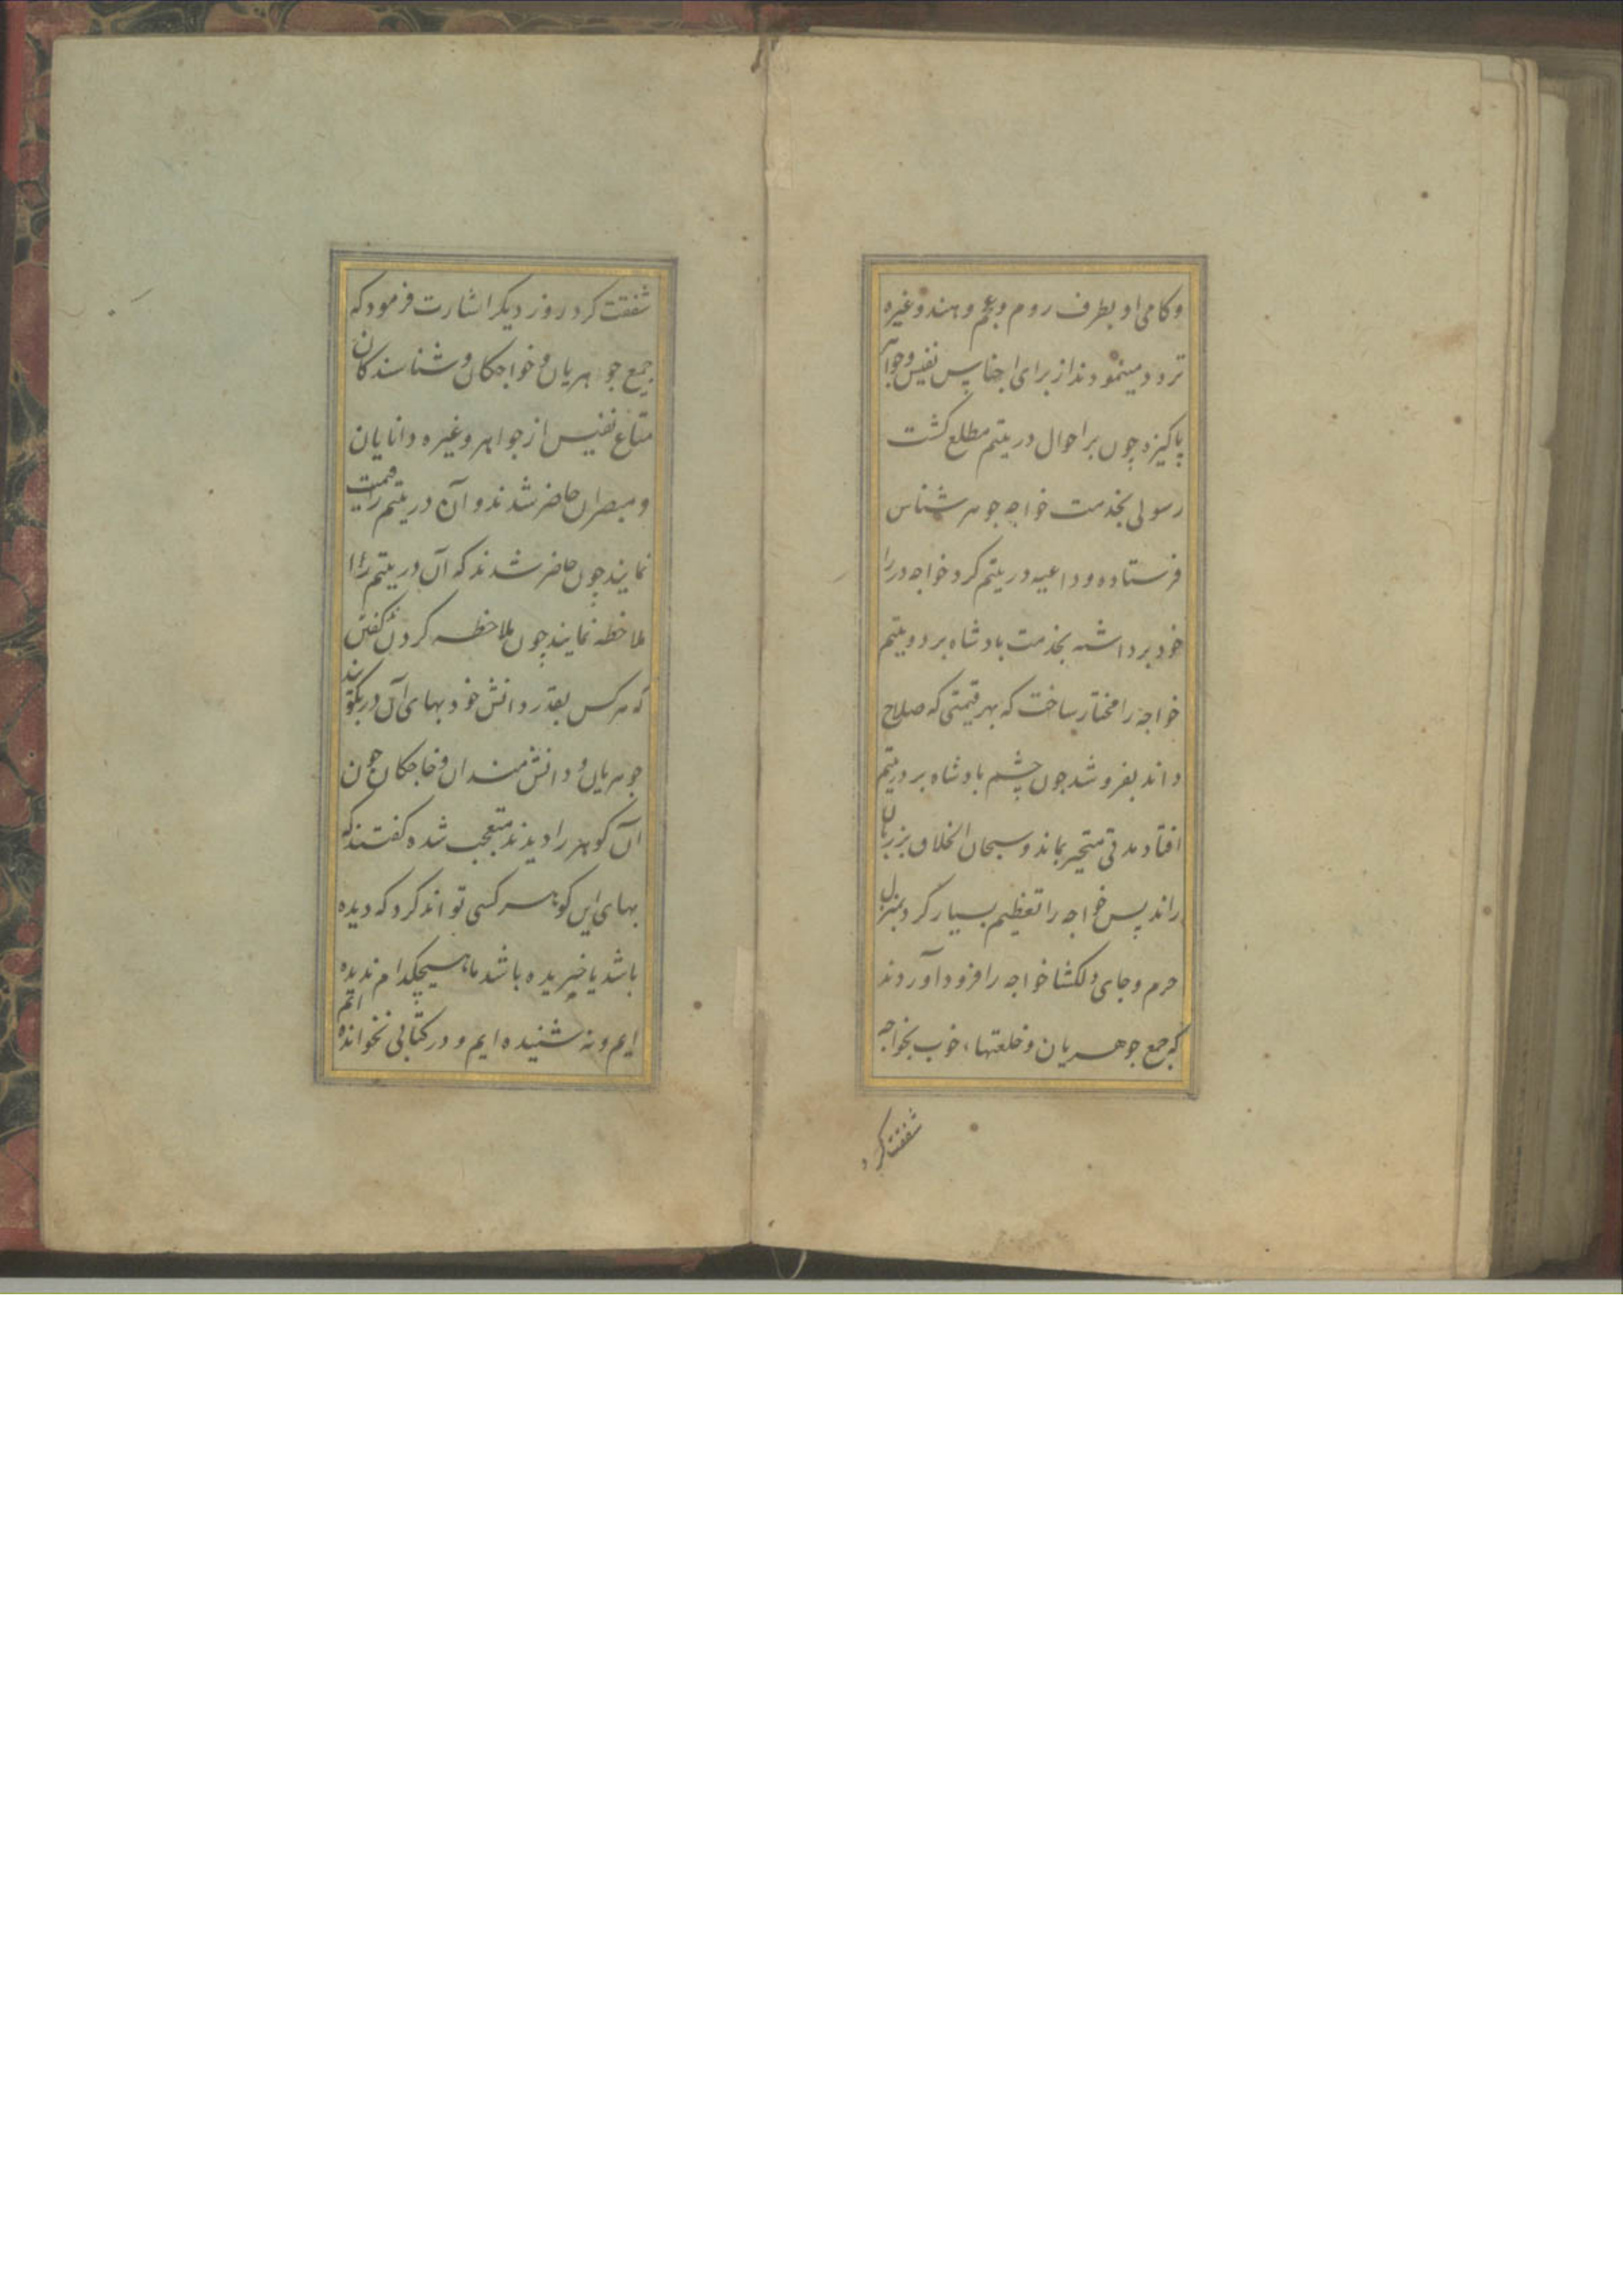 وکامی او بطرف روم و عجم و هند و غیره
تردد مینمودند از برای اجناس نفیس و جواهر
پاکیزه چون بر احوال در یتیم مطلع کشت
رسولی بخدمت خواجه جوهر شناس
فرستاده و داعیه در یتیم کرد خواجه در را
خود برداشته بخدمت بادشاه برد و یتیم
خواجه را مختار ساخت که بهر قیمتی که صلاح
داند بفروشد چون چشم بادشاه بر در یتیم
افتاد مدتی متحیر بماند و سبحان الخلاق بر زبان
راند پس خواجه را تعظیم بسیار کرد بمنزل
حرم و جای دلکشا خواجه را فرود آوردند
که جمع جوهریان و خلعتهاء خوب بخواجه
شفقت کرد
شفقت کرد روز دیکر اشارت فرمود که
جمع جوهریان و خواجکان و شناسندکان
متاع نفیس از جواهر و غیره دانایان
و مبصران حاضر شدند و آن در یتیم را قیمت
نمایند چون حاضر شدند که آن در یتیم را
ملاحظه نمایند چون ملاحظه کردن کفتند
که هر کس بقدر دانش خود بهای آن در بکوید
جوهریان و دانش مندان و خاجکان چون
آن کوهر را دیدند متعجب شده کفتند که
بهای این کوهر کسی تواند کرد که دیده
باشد یا خریده باشد ما هیچکدام ندیده
ایم و نه شنیده ایم و در کتابی نخوانده ایم